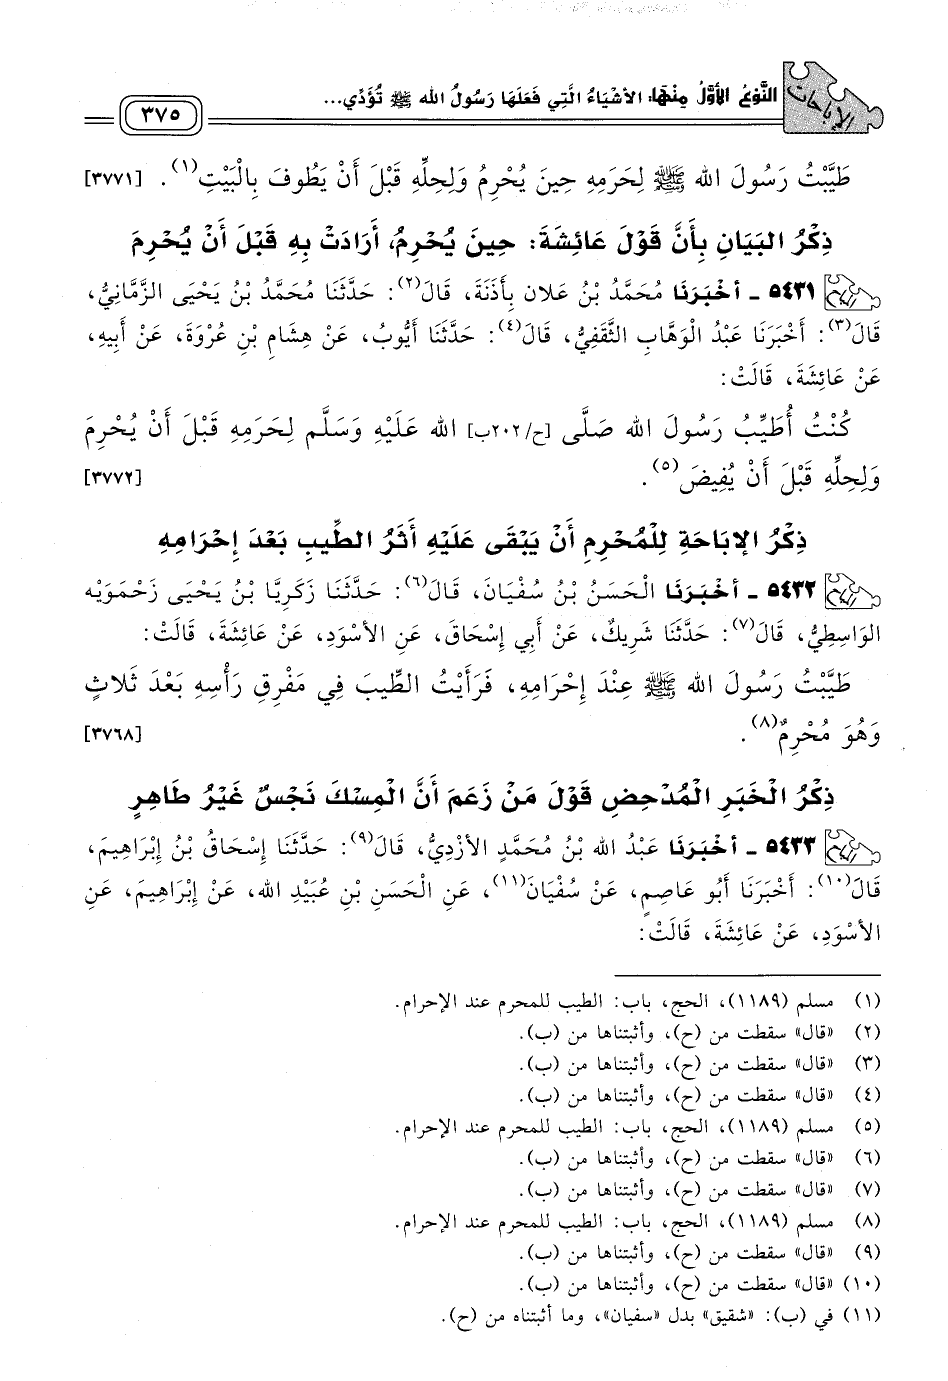 الإباحات
النَّوْعُ الأَوَّلُ مِنْهَا، الأَشْيَاءُ الَّتِي فَعَلَهَا رَسُولُ الله ﷺ تُؤَدِّي...
٣٧٥
طَيَّبْتُ رَسُولَ الله ﷺ لِحَرَمِهِ حِينَ يُحْرِمُ وَلِحِلِّهِ قَبْلَ أَنْ يَطُوفَ بِالْبَيْتِ(١). [٣٧٧١]
ذِكْرُ البَيَانِ بِأَنَّ قَوْلَ عَائِشَةَ: حِينَ يُحْرِمُ، أَرَادَتْ بِهِ قَبْلَ أَنْ يُحْرِمَ
٥٤٣١ ـ أَخْبَرَنَا مُحَمَّدُ بْنُ عَلان بِأَذَنَةَ، قَالَ(٢): حَدَّثَنَا مُحَمَّدُ بْنُ يَحْيَى الزِّمَّانِيُّ،
قَالَ(٣): أَخْبَرَنَا عَبْدُ الْوَهَّابِ الثَّقَفِيُّ، قَالَ(٤): حَدَّثَنَا أَيُّوبُ، عَنْ هِشَامِ بْنِ عُرْوَةَ، عَنْ أَبِيهِ،
عَنْ عَائِشَةَ، قَالَتْ:
كُنْتُ أُطَيِّبُ رَسُولَ الله صَلَّى [ح/٢٠٢ب] الله عَلَيْهِ وَسَلَّم لِحَرَمِهِ قَبْلَ أَنْ يُحْرِمَ
وَلِحِلِّهِ قَبْلَ أَنْ يُفِيضَ(٥). [٣٧٧٢]
ذِكْرُ الإبَاحَةِ لِلْمُحْرِمِ أَنْ يَبْقَى عَلَيْهِ أَثَرُ الطِّيبِ بَعْدَ إِحْرَامِهِ
٥٤٣٢ ـ أَخْبَرَنَا الْحَسَنُ بْنُ سُفْيَانَ، قَالَ(٦): حَدَّثَنَا زَكَرِيَّا بْنُ يَحْيَى زَحْمَوَيْه
الوَاسِطِيُّ، قَالَ(٧): حَدَّثَنَا شَرِيكٌ، عَنْ أَبِي إِسْحَاقَ، عَنِ الأَسْوَدِ، عَنْ عَائِشَةَ، قَالَتْ:
طَيَّبْتُ رَسُولَ الله ﷺ عِنْدَ إِحْرَامِهِ، فَرَأَيْتُ الطِّيبَ فِي مَفْرِقِ رَأْسِهِ بَعْدَ ثَلاثٍ
وَهُوَ مُحْرِمٌ(٨). [٣٧٦٨]
ذِكْرُ الْخَبَرِ الْمُدْحِضِ قَوْلَ مَنْ زَعَمَ أَنَّ الْمِسْكَ نَجْسٌ غَيْرُ طَاهِرٍ
٥٤٣٣ ـ أَخْبَرَنَا عَبْدُ الله بْنُ مُحَمَّدٍ الأَزْدِيُّ، قَالَ(٩): حَدَّثَنَا إِسْحَاقُ بْنُ إِبْرَاهِيمَ،
قَالَ(١٠): أَخْبَرَنَا أَبُو عَاصِمٍ، عَنْ سُفْيَانَ(١١)، عَنِ الْحَسَنِ بْنِ عُبَيْدِ الله، عَنْ إِبْرَاهِيمَ، عَنِ
الأَسْوَدِ، عَنْ عَائِشَةَ، قَالَتْ:
(١) مسلم (١١٨٩)، الحج، باب: الطيب للمحرم عند الإحرام.
(٢) «قال» سقطت من (ح)، وأثبتناها من (ب).
(٣) «قال» سقطت من (ح)، وأثبتناها من (ب).
(٤) «قال» سقطت من (ح)، وأثبتناها من (ب).
(٥) مسلم (١١٨٩)، الحج، باب: الطيب للمحرم عند الإحرام.
(٦) «قال» سقطت من (ح)، وأثبتناها من (ب).
(٧) «قال» سقطت من (ح)، وأثبتناها من (ب).
(٨) مسلم (١١٨٩)، الحج، باب: الطيب للمحرم عند الإحرام.
(٩) «قال» سقطت من (ح)، وأثبتناها من (ب).
(١٠) «قال» سقطت من (ح)، وأثبتناها من (ب).
(١١) في (ب): «شقيق» بدل «سفيان»، وما أثبتناه من (ح).